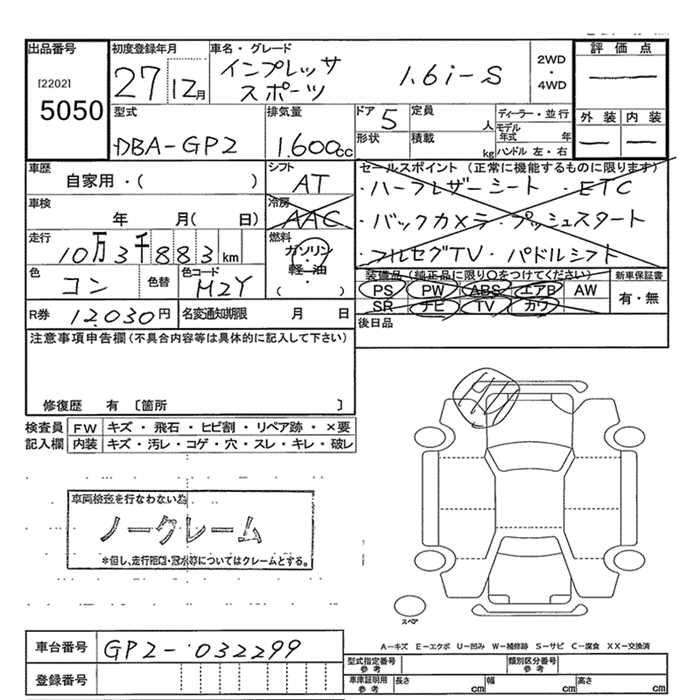 出品番号
[2202]
5050
初度登録年月
27 12月
車名・グレード
インプレッサ
スポーツ
1.6i-S
2WD
・
4WD
評価点
外装 内装
型式
DBA-GP2
排気量
1.600cc
ドア 5
定員 人
ディーラー・並行
形状
積載 kg
モデル年式 年
ハンドル 左・右
車歴
自家用・( )
シフト
AT
セールスポイント (正常に機能するものに限ります)
・ハーフレザーシート ・ETC
・バックカメラ・プッシュスタート
・フルセグTV・パドルシフト
車検
年 月( 日)
冷房
AAC
走行
10万3千883km
燃料
ガソリン
・
軽・油
・
( )
色
コン
色替
色コード
M2Y
装備品 (純正品に限り○をつけてください)
新車保証書
PS PW ABS エアB AW
SR ナビ TV カワ
有・無
R券 12,030円
名変通知期限 月 日
後日品
注意事項申告欄(不具合内容等は具体的に記入して下さい)
修復歴 有 〔箇所 〕
検査員 FW キズ・飛石・ヒビ割・リペア跡・×要
記入欄 内装 キズ・汚レ・コゲ・穴・スレ・キレ・破レ
車両検査を行なわない為
ノークレーム
*但し、走行距離・冠水等についてはクレームとする。
スペア
A-キズ E-エクボ U-凹み W-補修跡 S-サビ C-腐食 XX-交換済
車台番号 GP2-032299
登録番号
型式指定番号 参考
類別区分番号 参考
車庫証明用 参考
長さ cm 幅 cm 高さ cm